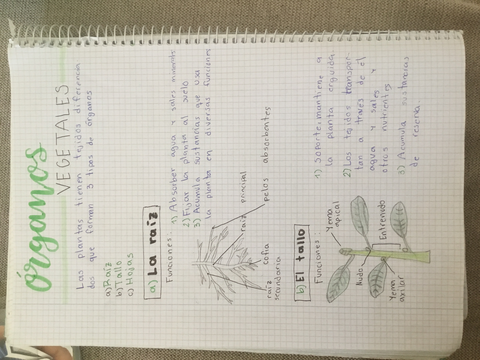 órganos
VEGETALES
Las plantas tienen tejidos diferencia
dos que forman 3 tipos de órganos
a) Raíz
b) Tallo
c) Hojas
a) La raíz
Funciones
1) Absorber agua y sales minerales
2) Fijar la planta al suelo
3) Acumula sustancias que usa
la planta en diversas funciones
raíz principal
pelos absorbentes
cofia
raíz
secundaria
b) El tallo
Funciones
1) Soporte: mantiene a
la planta erguida
2) Los tejidos transpor
tan a través de él
agua y sales y
otros nutrientes
3) Acumula sustancias
de reserva
Yema
apical
Nudo
Entrenudo
Yema
axilar